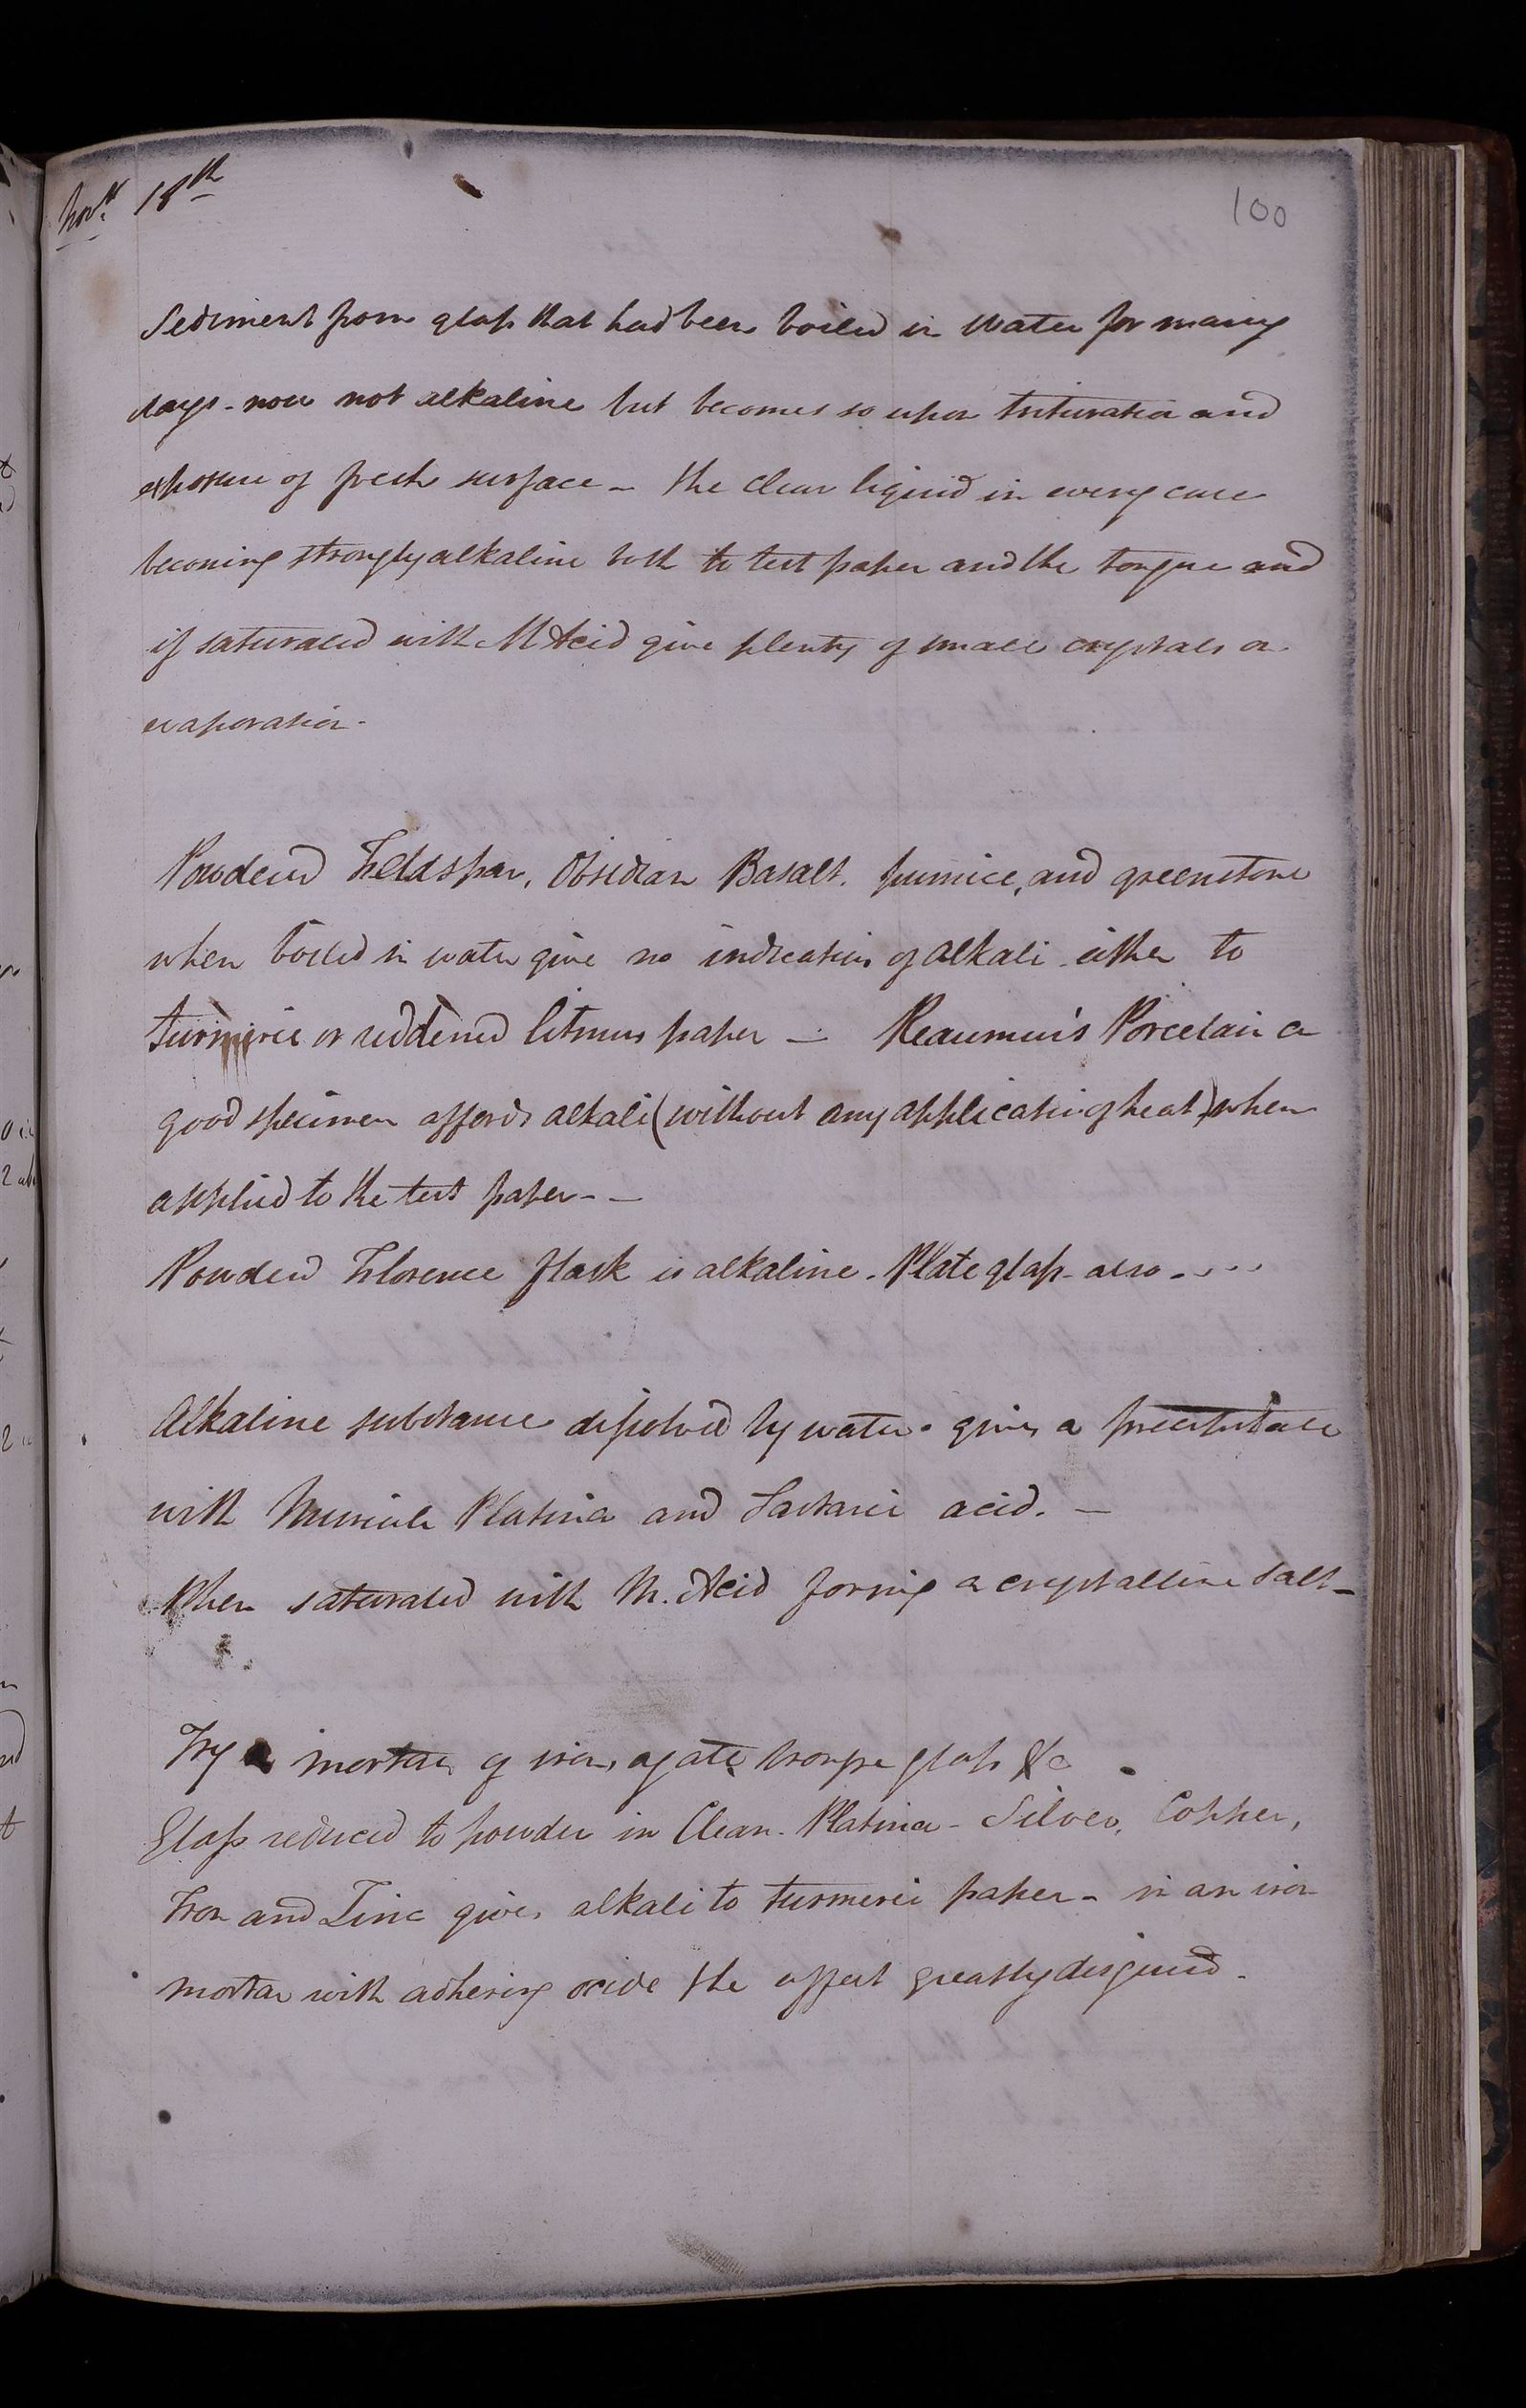 Novr. 18th
100
Sediment from glass that had been boiled in Water for many
days - now not alkaline but becomes so upon trituration and
exposure of fresh surface - the clear liquid in every case
becoming strongly alkaline both to test paper and the tongue and
if saturated with M Acid give plenty of small crystals on
evaporation -
Powdered Feldspar, Obsidian Basalt. pumice, and greenstone
when boiled in water give no indication of alkali either to
turmeric or reddened litmus paper - Reaumur's Porcelain a
good specimen affords alkali (without any application of heat) when
applied to the test paper - -
Powdered Florence flask is alkaline. Plate glass also - - - -
Alkaline substance dissolved by water - gives a precipitate
with Muriate Platina and Tartaric acid. -
When saturated with M. Acid forming a crystalline Salt -
Try mortar of iron, agate, bronze glass &c
Glass reduced to powder in Clean - Platina - Silver, Copper,
Iron and Zinc gives alkali to turmeric paper - in an iron
mortar with adhering oxide the effect greatly disguised -